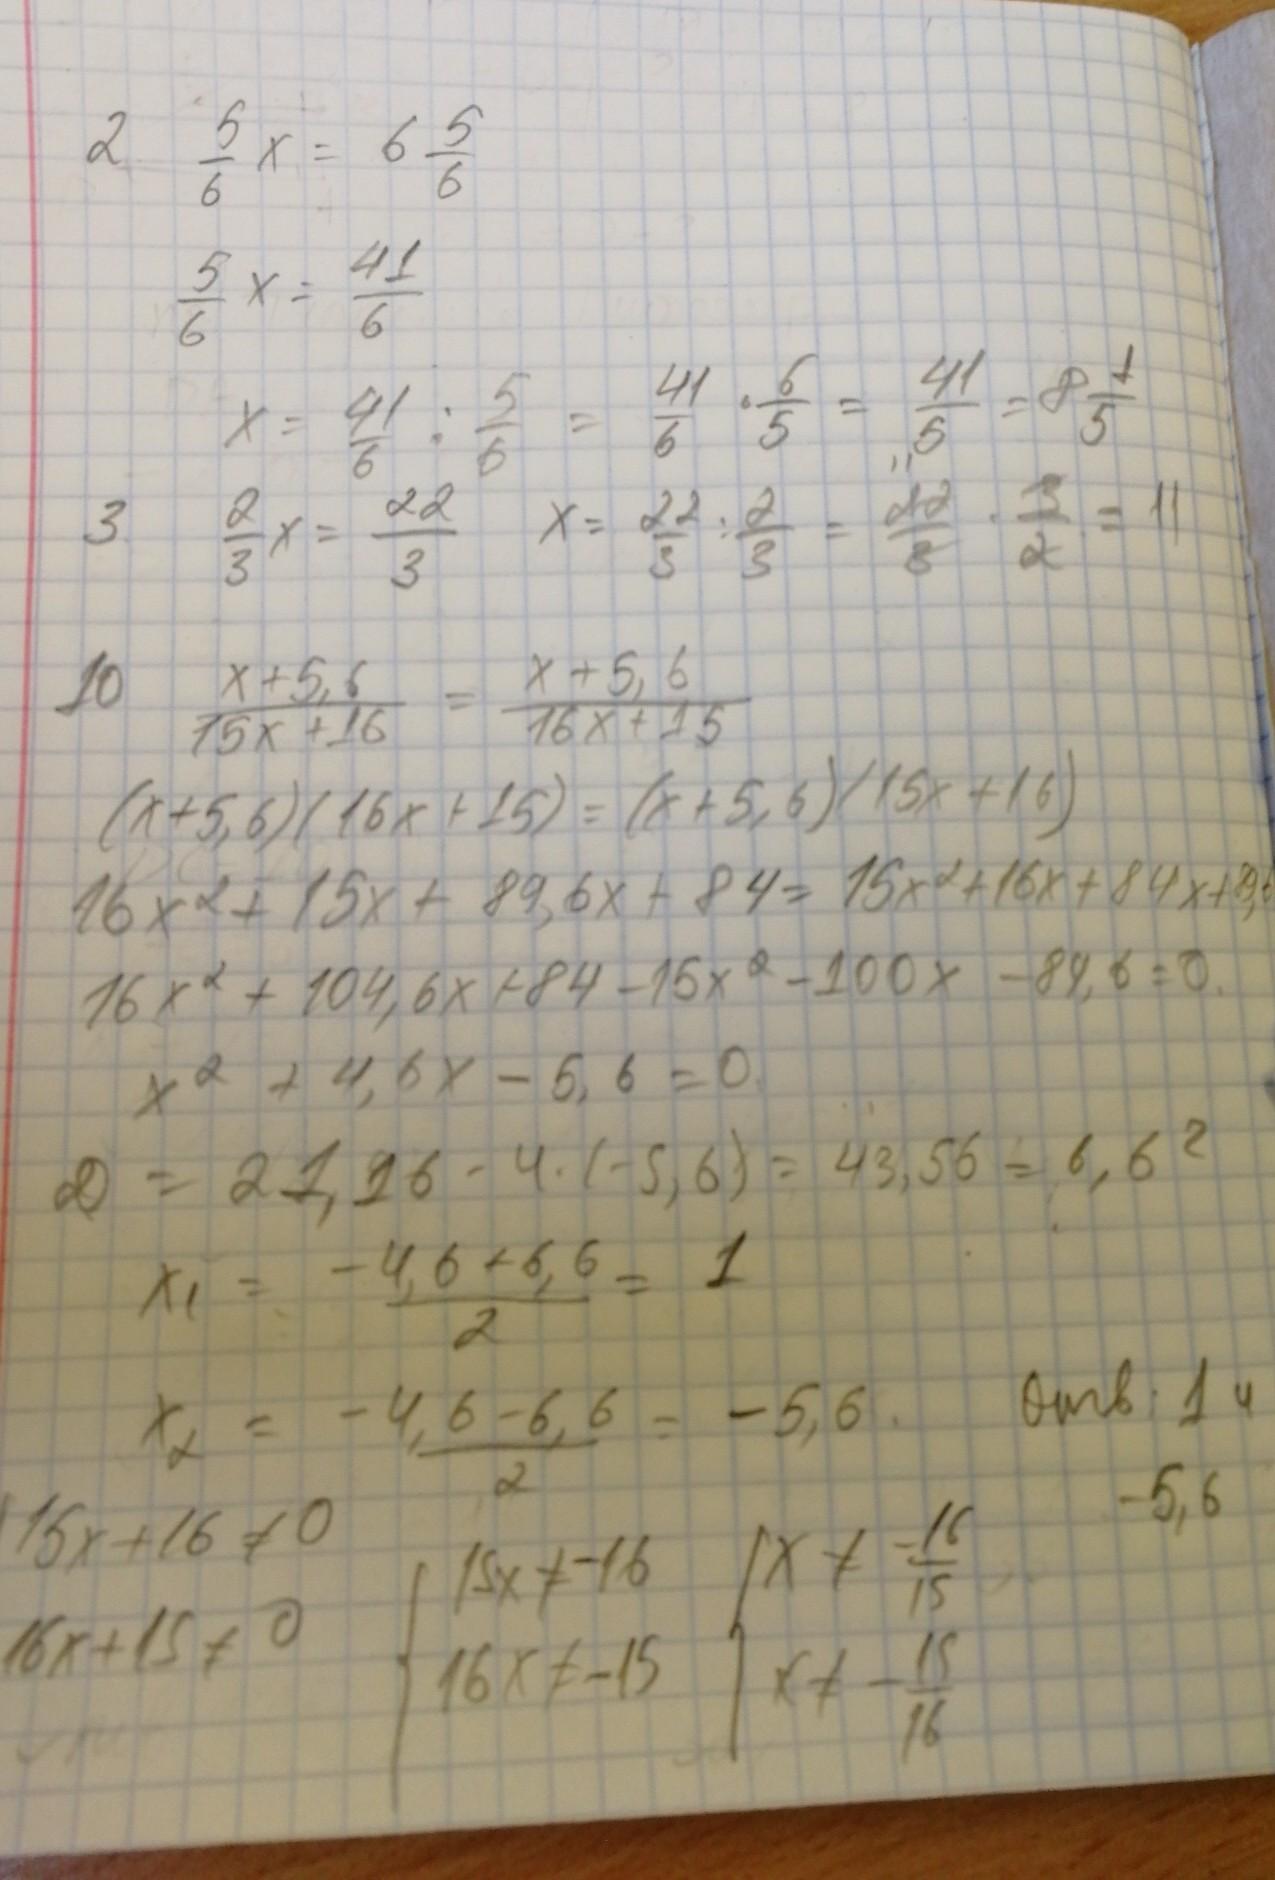 2. 5/6 x = 6 5/6
5/6 x = 41/6
x = 41/6 : 5/6 = 41/6 · 6/5 = 41/5 = 8 1/5
3. 2/3 x = 22/3 x = 22/3 : 2/3 = 22/3 · 3/2 = 11
10 (x+5,6)/(15x+16) = (x+5,6)/(16x+15)
(x+5,6)(16x+15) = (x+5,6)(15x+16)
16x² + 15x + 89,6x + 84 = 15x² + 16x + 84x + 89,6
16x² + 104,6x + 84 - 15x² - 100x - 89,6 = 0.
x² + 4,6x - 5,6 = 0.
D = 21,16 - 4·(-5,6) = 43,56 = 6,6²
x₁ = (-4,6+6,6)/2 = 1
x₂ = (-4,6-6,6)/2 = -5,6. Отв: 1 и
-5,6
15x+16 ≠ 0 15x ≠ -16 x ≠ -16/15
16x+15 ≠ 0 16x ≠ -15 x ≠ -15/16